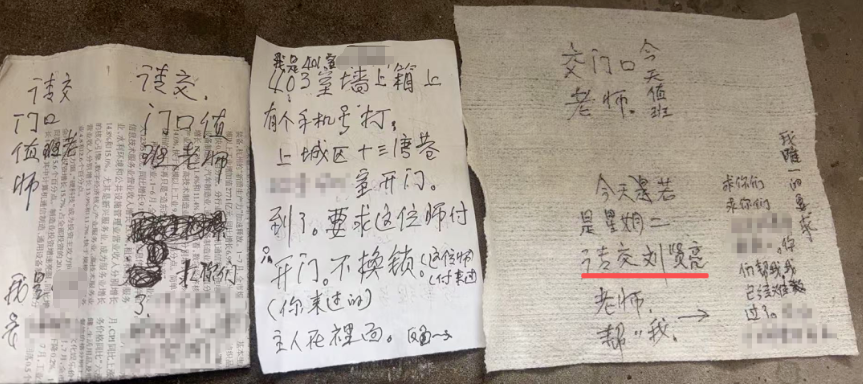 请交
门口
值班老
师
我是
请交.
门口值
班老师
求你们
了.
我是401室
403室墙上箱上
有个手机号打,
上城区十三湾巷
室开门。
到了。要求这位师付
开门。不换锁。(这位师
付来过)
(你来过的)
主人在裡面。反面→
今天值班
交门口
老师.
今天是若
是星期二
请交刘贤亮
老师.
帮"我.→
我唯一的要求
求你们
求你们
你
们帮我我
已经难熬
过了